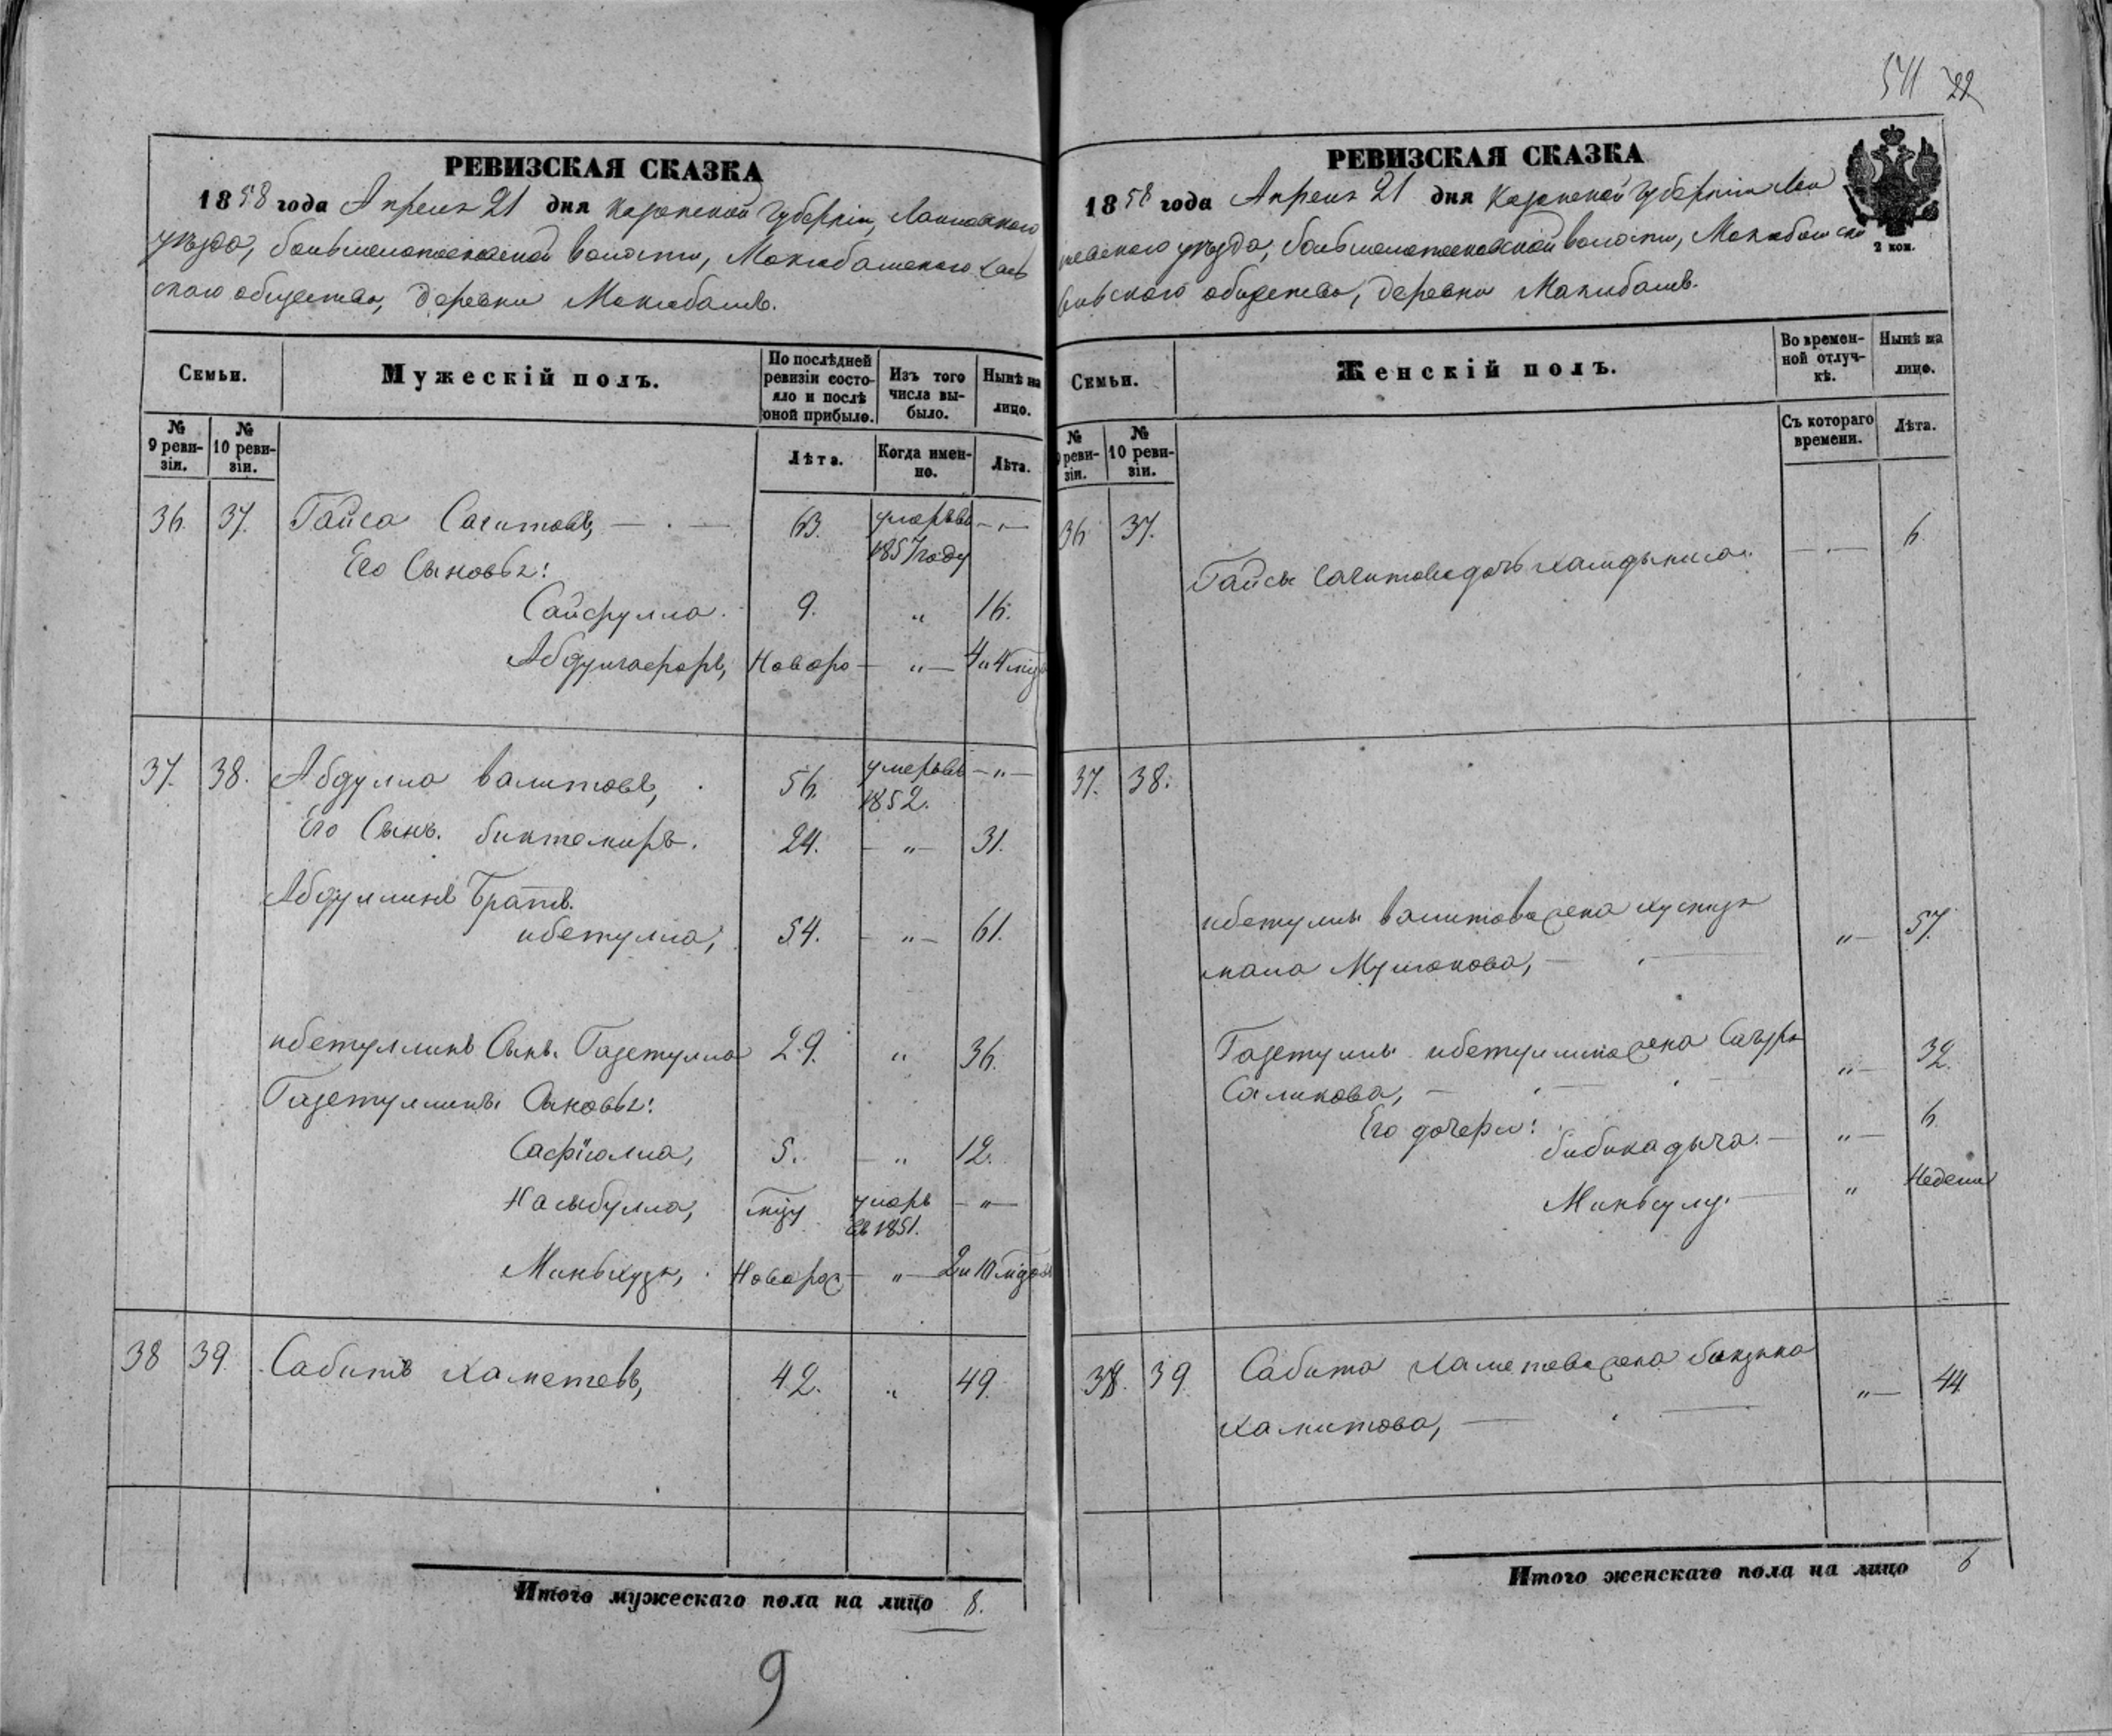 РЕВИЗСКАЯ СКАЗКА
1858 года Апреля 21 дня Казанской Губерніи, Лаишевского
уезда, волости,
ского общества, деревни Макибашъ.
Семьи.
Мужескій полъ.
По послѣдней ревизіи состояло и послѣ оной прибыло.
Изъ того числа выбыло.
Нынѣ на лицо.
№ 9 ревизіи.
№ 10 ревизіи.
Лѣта.
Когда именно.
Лѣта.
36. 37. Гайса Сагитовъ, 63. умеръ въ 1857 году
Его Сыновья:
Сайфулла. 9. " 16.
Абдулгафаръ, Новоро " 4 и 4 мѣс
37. 38. Абдулла Валитовъ, 56. умеръ въ 1852. "
Его Сынъ. Биктемиръ. 24. " 31.
Абдуллинъ Братъ.
ибетулла, 54. " 61.
ибетуллинъ Сынъ. Газетулла 29. " 36.
Газетуллины Сыновья:
Сафіюлла, 5. " 12.
Насыбулла, умеръ въ 1851. "
Новорож " 2 и 10
38 39. Сабитъ Хаметевъ, 42. " 49.
Итого мужескаго пола на лицо 8.
9
511 22
РЕВИЗСКАЯ СКАЗКА
2 коп.
1858 года Апреля 21 дня Казанской Губерніи Лаи
шевского уезда, волости,
общества, деревни Макибашъ.
Семьи.
Женскій полъ.
Во временной отлучкѣ.
Нынѣ на лицо.
№ 9 ревизіи.
№ 10 ревизіи.
Съ котораго времени.
Лѣта.
36 37.
Гайсы Сагитова дочь 6
37. 38.
ибетуллы Валитова жена
" 57.
Газетуллы ибетуллина жена
Саликова, " 32.
Его дочери:
" 6.
" Недели
38. 39 Сабита Хаметева жена
Хамитова, " 44
Итого женскаго пола на лицо 6